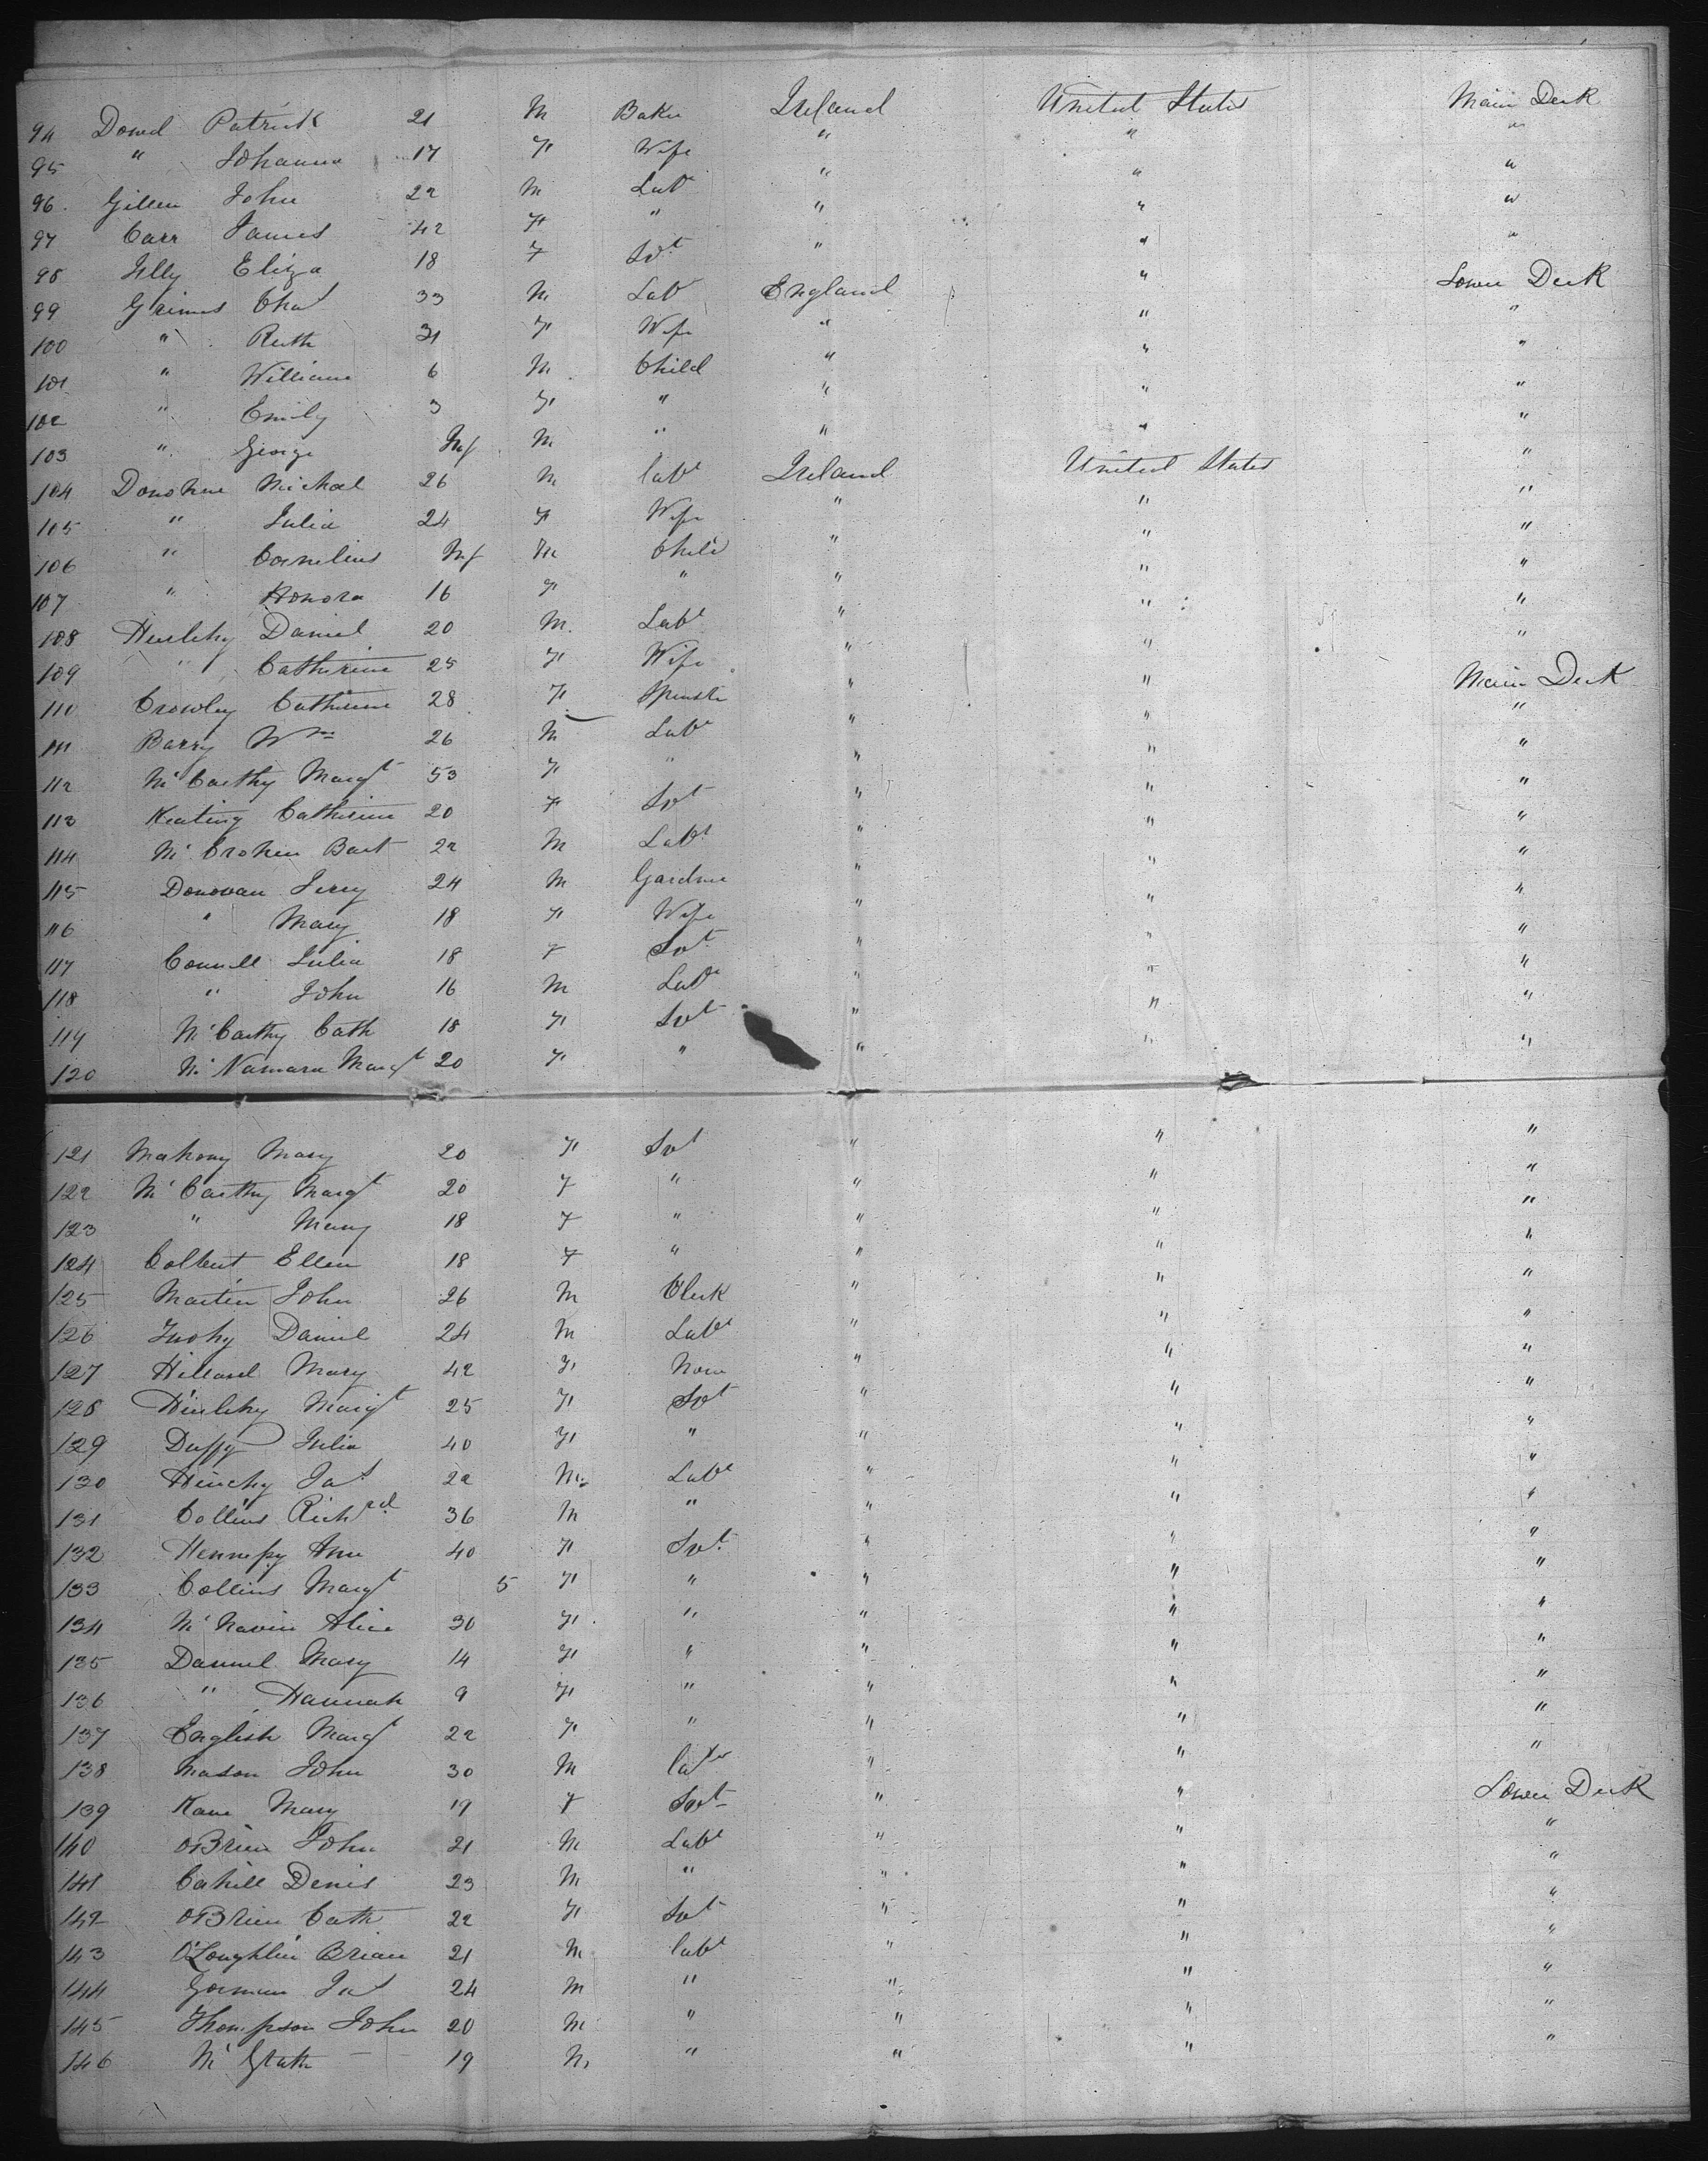 94 Dowd Patrick 21 M Baker Ireland United States Main Deck
95 " Johanna 17 F Wife " " "
96 Gillen John 22 M Labr " " "
97 Carr James 42 F " " " "
98 Eliza 18 F Svt " " "
99 Grimes Chas 33 M Lab England " Lower Deck
100 " Ruth 31 F Wife " " "
101 " William 6 M Child " " "
102 " Emily 3 F " " " "
103 " George Inf M " " " "
104 Donohue Michael 26 M labr Ireland United States "
105 " Julia 24 F Wife " " "
106 " Cornelius Inf M Child " " "
107 " Honora 16 F " " " "
108 Daniel 20 M Labr " " "
109 " Catherine 25 F Wife " " "
110 Crowley Catherine 28 F Spinstr " " Main Deck
111 Barry Wm 26 M Labr " " "
112 McCarthy Margt 53 F " " " "
113 Keating Catherine 20 F Svt " " "
114 Bart 22 M Labr " " "
115 Donovan Jerry 24 M Gardner " " "
116 " Mary 18 F Wife " " "
117 Connell Julia 18 F Svt " " "
118 " John 16 M Labr " " "
119 McCarthy Cath 18 F Svt " " "
120 McNamara Margt 20 F " " " "
121 Mahony Mary 20 F Svt " " "
122 McCarthy Margt 20 F " " " "
123 " Mary 18 F " " " "
124 Colbert Ellen 18 F " " " "
125 Martin John 26 M Clerk " " "
126 Tuohy Daniel 24 M Labr " " "
127 Hillard Mary 42 F None " " "
128 Margt 25 F Svt " " "
129 Duffy Julia 40 F " " " "
130 Hinchy Pat 22 M Labr " " "
131 Collins Richrd 36 M " " " "
132 Hennessy Ann 40 F Svt " " "
133 Collins Margt 5 F " " " "
134 Alice 30 F " " " "
135 Daniel Mary 14 F " " " "
136 " Hannah 9 F " " " "
137 English Margt 22 F " " " "
138 Mason John 30 M labr " " "
139 Kane Mary 19 F Svt " " Lower Deck
140 OBrien John 21 M Labr " " "
141 Cahill Denis 23 M " " " "
142 OBrien Cath 22 F Svt " " "
143 O'Loughlin Brian 21 M labr " " "
144 Gorman Pat 24 M " " " "
145 Thompson John 20 M " " " "
146 McGrath — — 19 M " " " "